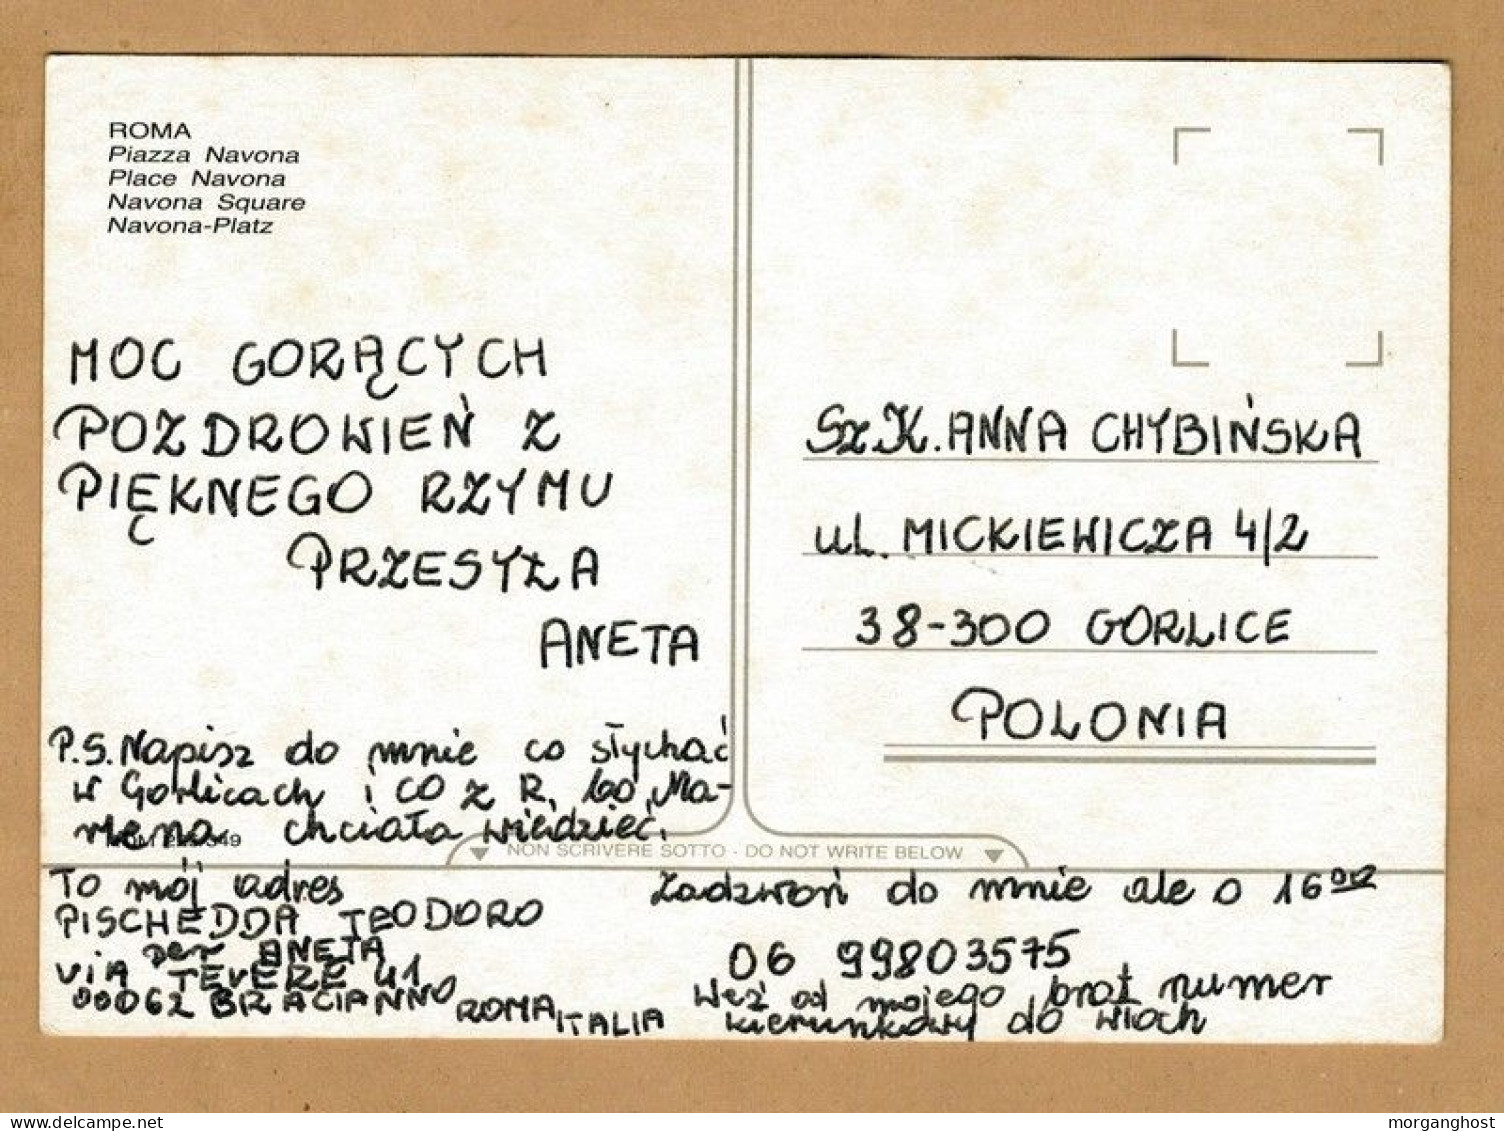 ROMA
Piazza Navona
Place Navona
Navona Square
Navona-Platz
MOC GORĄCYCH
POZDROWIEŃ Z
PIĘKNEGO RZYMU
PRZESYŁA
ANETA
P.S. Napisz do mnie co słychać
w Gorlicach i co z R. bo Ma-
rzena chciała wiedzieć.
Sz.K. ANNA CHYBIŃSKA
ul. MICKIEWICZA 4/2
38-300 GORLICE
POLONIA
NON SCRIVERE SOTTO - DO NOT WRITE BELOW
To mój adres
PISCHEDDA TEODORO
per ANETA
VIA TEVERE 41
00062 BRACIANNO ROMA ITALIA
Zadzwoń do mnie ale o 16 00
06 99803575
Weź od mojego brat numer
kierunkowy do Włoch
delcampe.net
morganghost